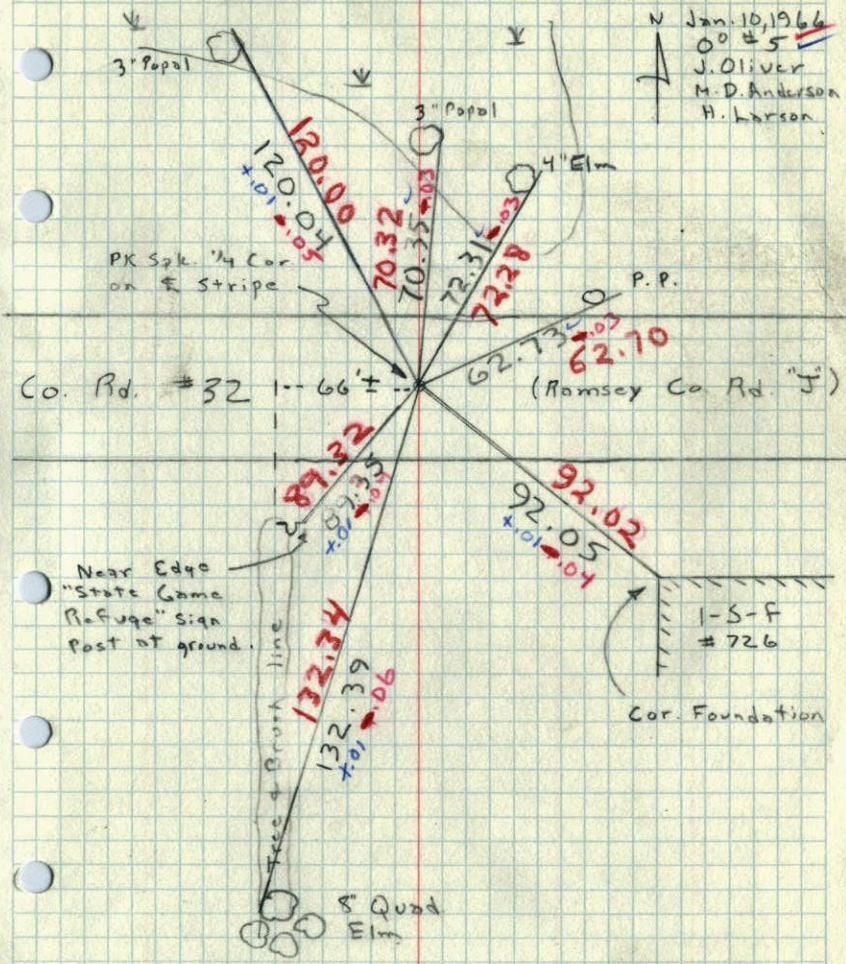 N
Jan. 10, 1966
0° #5
J. Oliver
M. D. Anderson
H. Larson
3" Popal
3" Popal
4" Elm
120.00
120.04
+.01 -.05
70.32
70.35 -.03
72.31 -.03
72.28
PK Spk. 1/4 Cor
on ℄ Stripe
P.P.
62.73 -.03
62.70
Co. Rd. #32
66'±
(Ramsey Co. Rd. "J")
89.32
89.35
+.01 -.04
92.02
92.05
+.01 -.04
Near Edge
"State Game
Refuge" Sign
Post at ground.
1-S-F
#726
Cor. Foundation
132.34
132.39
+.01 -.06
Tree & Brush line
8" Quad
Elm